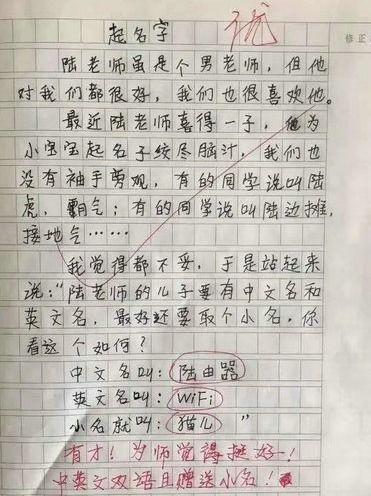 起名字
优
修正
陆老师虽是个男老师，但他
对我们都很好，我们也很喜欢他。
最近陆老师喜得一子，他为
小宝宝起名子绞尽脑汁，我们也
没有袖手旁观，有的同学说叫陆
虎，霸气；有的同学说叫陆边摊，
接地气……
我觉得都不妥，于是站起来
说："陆老师的儿子要有中文名和
英文名，最好还要取个小名，你
看这个如何？
中文名叫：陆由器
英文名叫：WiFi
小名就叫：猫儿"
有才！为师觉得挺好！
中英文双语且赠送小名！